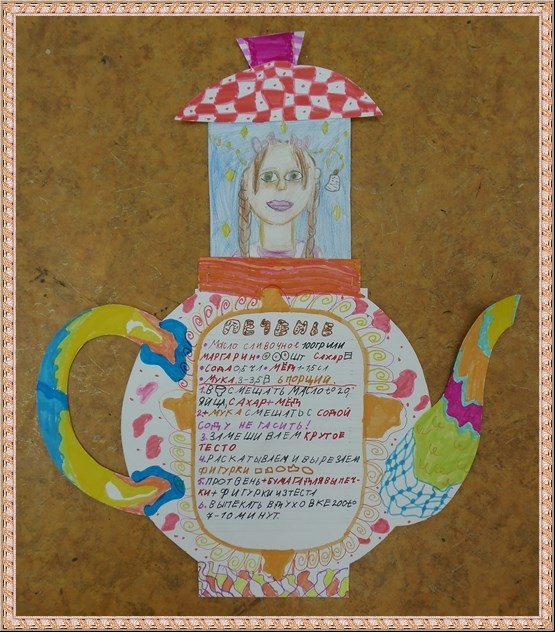 ПЕЧЕНЬЕ
• Масло сливочное 100гр или
МАРГАРИН+ шт САХАР
•СОДА 0,5 Ч.Л+МЁД-1-1,5 СЛ
•МУКА.3-3,5 6 ПОРЦИЙ.
1.В СМЕШАТЬ МАСЛО to 20,
ЯЙЦА,САХАР+МЁД
2+МУКА СМЕШАТЬ С СОДОЙ
СОДУ НЕ ГАСИТЬ!
3.ЗАМЕШИВАЕМ КРУТОЕ
ТЕСТО
4.РАСКАТЫВАЕМ И ВЫРЕЗАЕМ
ФИГУРКИ
5.ПРОТВЕНЬ+БУМАГА ДЛЯ ВЫПЕЧ-
КИ+ФИГУРКИ ИЗ ТЕСТА
6.ВЫПЕКАТЬ В ДУХОВКЕ 200to
7-10 МИНУТ.